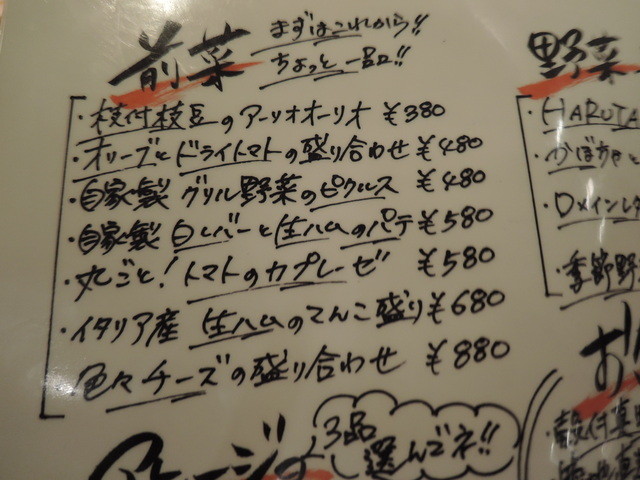 前菜
まずはこれから!!
ちょっと一品!!
・枝付枝豆のアーリオオーリオ ¥380
・オリーブとドライトマトの盛り合わせ ¥480
・自家製 グリル野菜のピクルス ¥480
・自家製 白レバーと生ハムのパテ ¥580
・丸ごと!トマトのカプレーゼ ¥580
・イタリア産 生ハムのてんこ盛り ¥680
・色々チーズの盛り合わせ ¥880
3品
選んでネ!!
野菜
・HARUTA
・かぼちゃと
・ロメインレタ
・季節野